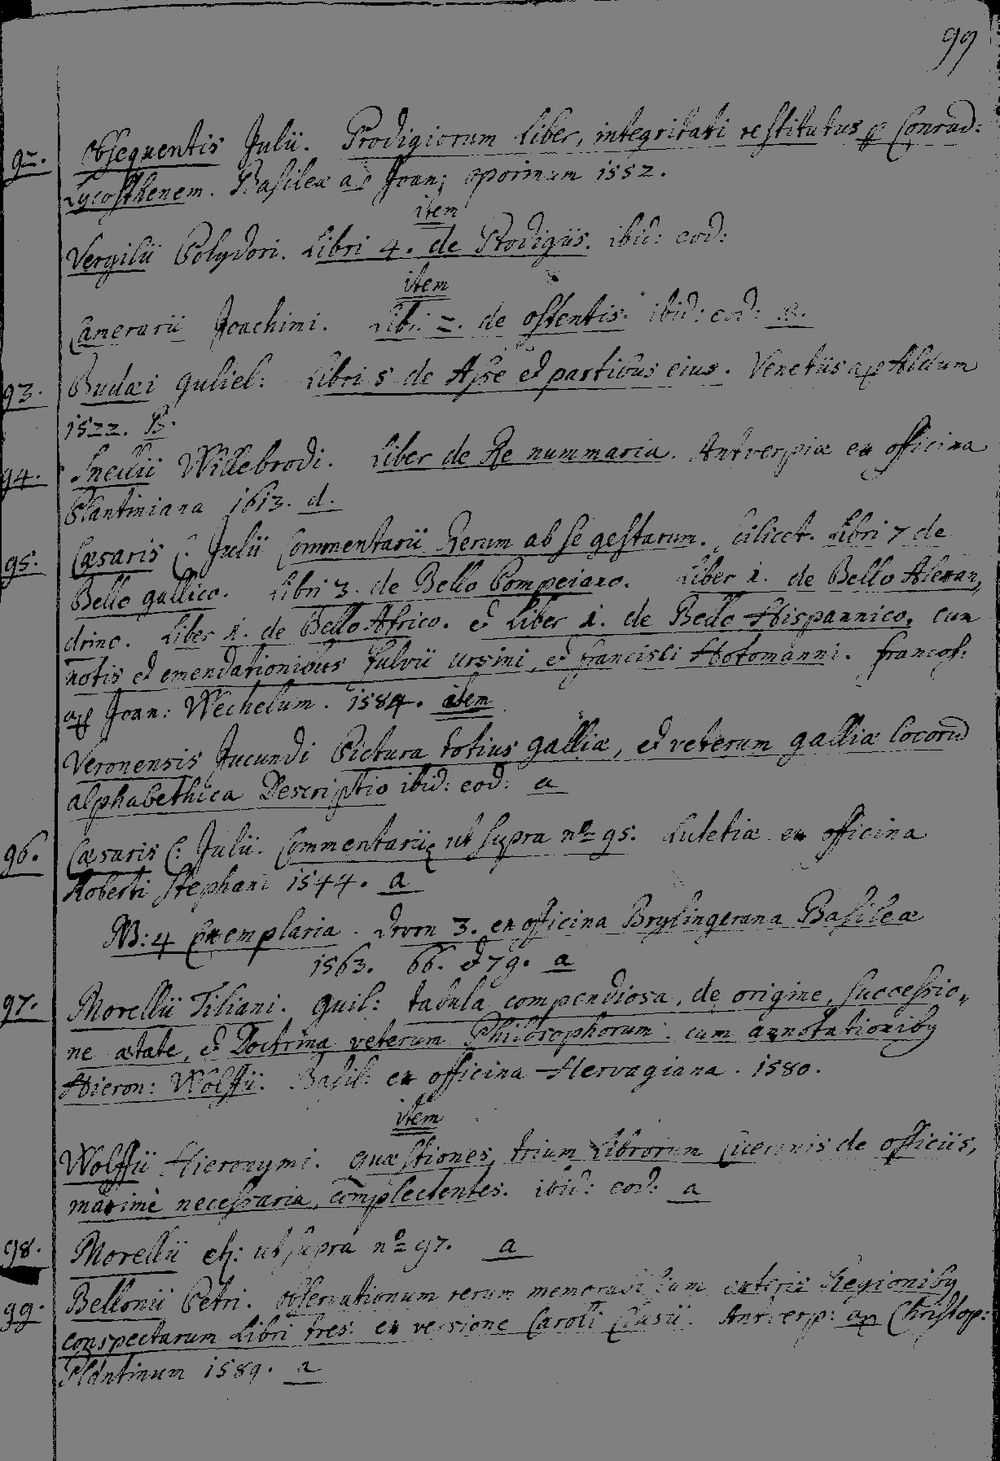 99
92. Obsequentis Julii. Prodigiorum Liber, integritati restitutus p Conrad:
Lycosthenem. Basileæ ap Joan: oporinum 1552.
item
Vergilii Polydori. Libri 4. de Prodigiis. ibid: eod:
item
Camerarii Joachimi. Libri 2. de ostentis. ibid: eod: a.
93. Budæi Guliel: Libri 5 de Asse et partibus eius. Venetiis ap Aldum
1522. B.
94. Snellii Willebrodi. Liber de Re nummaria. Antverpiæ ex officina
Plantiniana 1613. d.
95. Cæsaris C: Julii Commentarii Rerum ab se gestarum. scilicet. Libri 7 de
Bello gallico. Libri 3. de Bello Pompeiano. Liber 1. de Bello Alexan,
drino. Liber 1. de Bello Africo. et Liber 1. de Bello Hispannico, cum
notis et emendationibus Fulvii Ursini, et Francisci Hotomanni. francof:
ap Joan: Wechelum. 1584. item
Veronensis Jucundi Pictura totius galliæ, et veterum galliæ locorū
alphabethica Descriptio ibid: eod: a
96. Cæsaris C: Julii. Commentarii ut supra nº 95. Lutetiæ ex officina
Roberti Stephani 1544. a
NB: 4 Exemplaria. 3. ex officina Brylingerana Basileæ
1563. 66. et 79. a
97. Morellii Tiliani. Guil: tabula compendiosa, de origine, successio„
ne ætate, et Doctrina veterum Philosophorum: cum annotationiby
Hieron: Wolfii. Basil: ex officina Hervagiana. 1580.
item
Wolffii Hieronymi. quæstiones, trium Librorum Ciceronis de officiis,
maximè necessaria, complectentes. ibid: eod: a
98. Morellii etc: ut supra nº 97. a
99. Bellonii Petri. observationum rerum memorabilium exteris Regioniby
conspectarum Libri tres: ex versione Caroli Clusii. Antverp: ap Christop:
Plantinum 1589. a